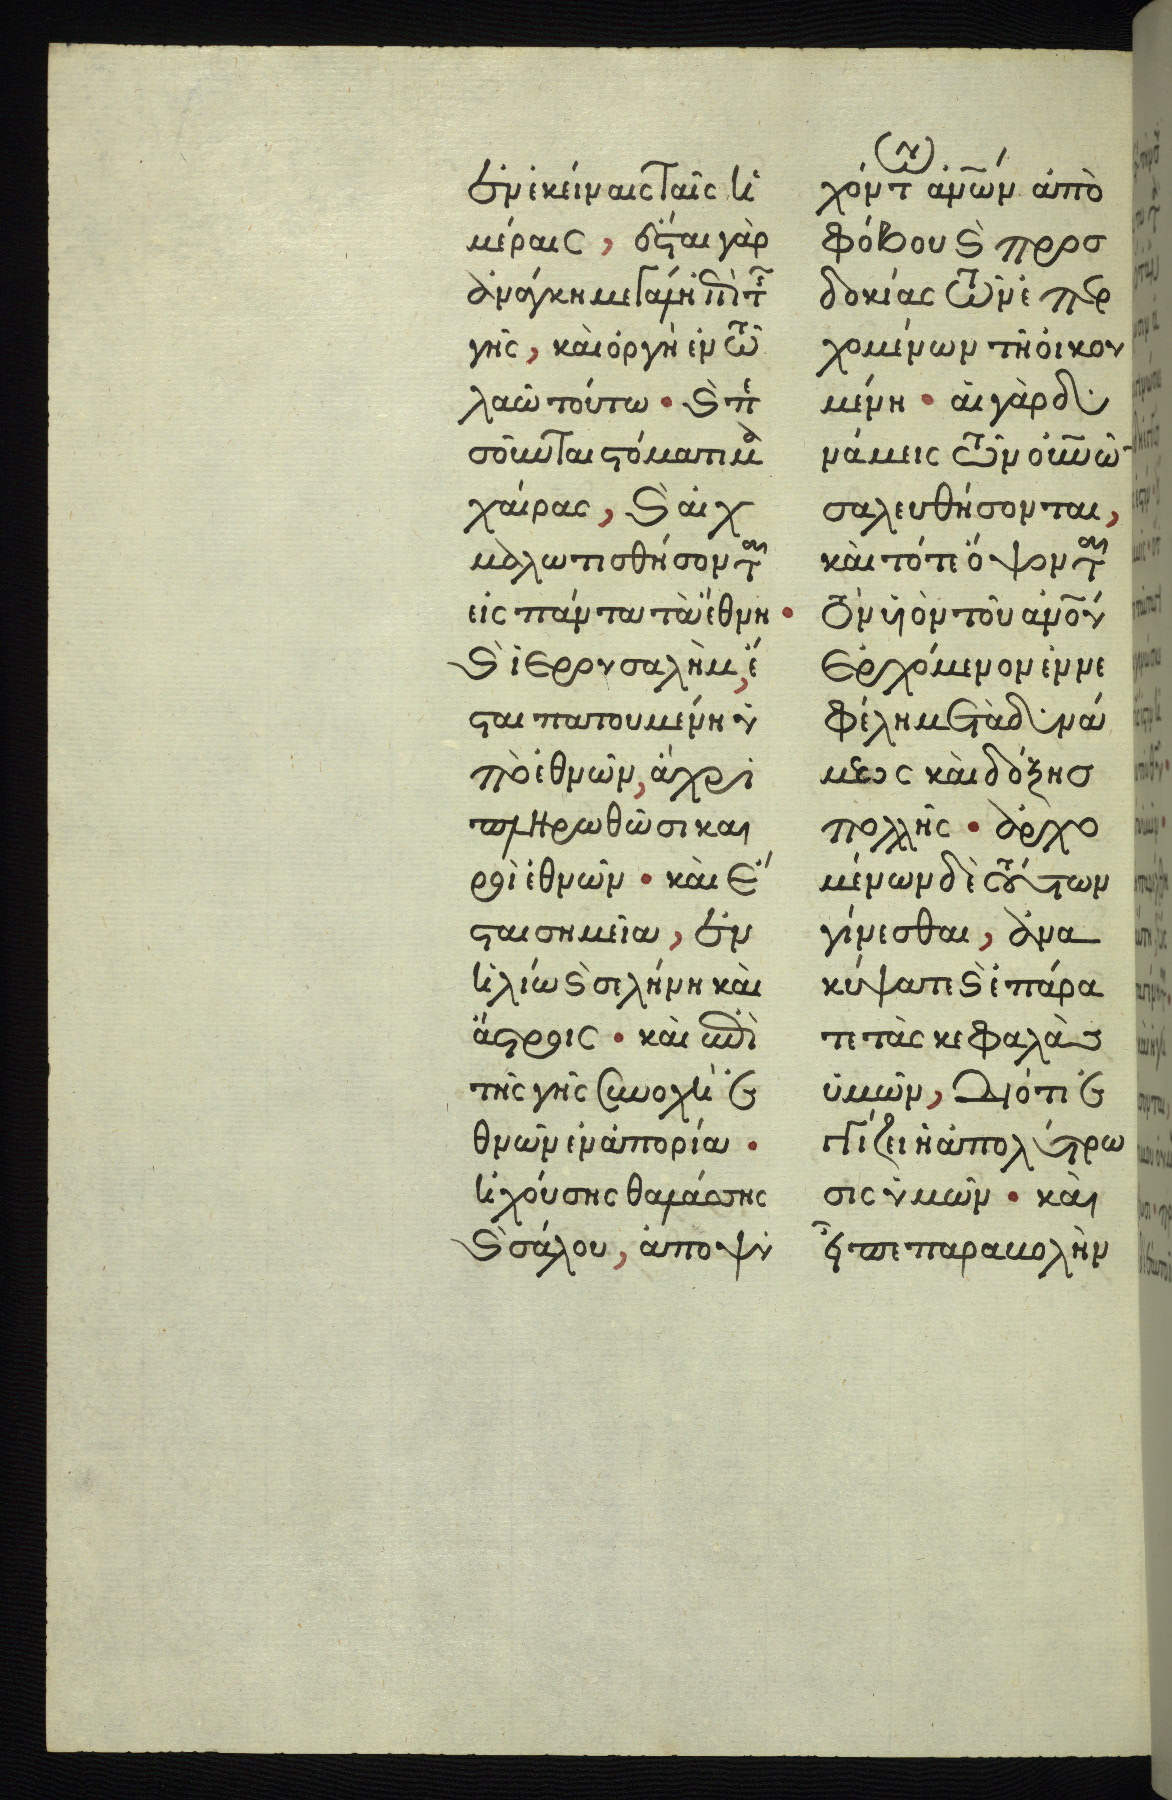 ἐν ἐκείναις ταῖς ἡ
μέραις, ἔσται γὰρ
ἀνάγκη μεγάλη ἐπὶ τ
γῆς, καὶ ὀργὴ ἐν τῶ
λαῶ τούτω· καὶ πε
σοῦνται στόματι μα
χαίρας, καὶ αἰχ
μαλωτισθήσονται
εἰς πάντα τὰ ἔθνη·
καὶ ἱερουσαλὴμ, ἔ
σται πατουμένη ὑ
πὸ ἐθνῶν, ἄχρι
πληρωθῶσι και
ροὶ ἐθνῶν· καὶ ἔ
σται σημεῖα, ἐν
ἡλίω καὶ σελήνη καὶ
ἄστροις· καὶ ἐπὶ
τῆς γῆς συνοχὴ ἐ
θνῶν ἐν ἀπορία·
ἠχούσης θαλάσσης
καὶ σάλου, ἀποψυ
χόντων ἀνῶν ἀπὸ
φόβου καὶ προσ
δοκίας τῶν ἐπερ
χομένων τῆ οἰκου
μένη· αἱ γὰρ δυ
νάμεις τῶν οὐνῶν
σαλευθήσονται,
καὶ τότε ὄψονται
τὸν υἱὸν τοῦ ἀνου
ἐρχόμενον ἐν νε
φέλη μετὰ δυνά
μεως καὶ δόξης
πολλῆς· ἀρχο
μένων δὲ τούτων
γίνεσθαι, ἀνα
κύψατε καὶ ἐπάρα
τε τὰς κεφαλὰς
ὑμῶν, διότι ἐγ
γίζει ἡ ἀπολύτρω
σις ὑμῶν· καὶ
εἶπε παραβολὴν